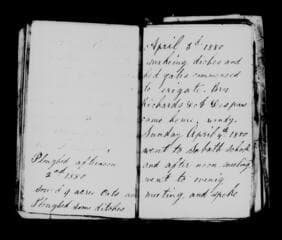 Plughed afternoon
2nd 1880
sowed 9 acres Oats and
Plughed some ditches
April 3d 1880
making diches and
hed gates commenced
to irigate. Bro
Richards & A
came home. windy.
Sunday April 4th 1880
went to Sabath School
and after noon meeting
went to evenig
meeting, and spoke